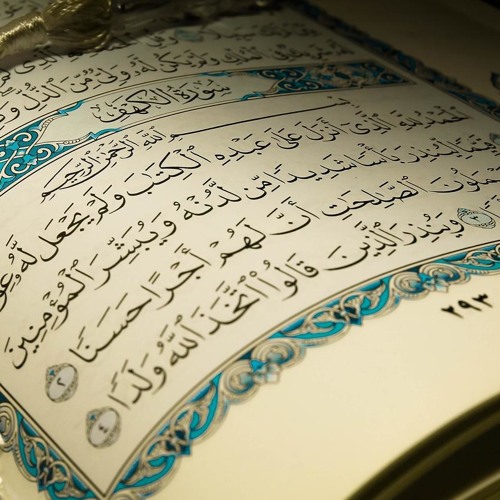 وَلَمْ يَكُن لَّهُۥ وَلِىٌّ مِّنَ ٱلذُّلِّ
سُورَةُ الكَهْفِ
بِسْمِ ٱللَّهِ ٱلرَّحْمَٰنِ ٱلرَّحِيمِ
ٱلْحَمْدُ لِلَّهِ ٱلَّذِىٓ أَنزَلَ عَلَىٰ عَبْدِهِ ٱلْكِتَٰبَ وَلَمْ يَجْعَل لَّهُۥ
قَيِّمًا لِّيُنذِرَ بَأْسًا شَدِيدًا مِّن لَّدُنْهُ وَيُبَشِّرَ ٱلْمُؤْمِنِينَ
يَعْمَلُونَ ٱلصَّٰلِحَٰتِ أَنَّ لَهُمْ أَجْرًا حَسَنًا ٢
٣ وَيُنذِرَ ٱلَّذِينَ قَالُوا۟ ٱتَّخَذَ ٱللَّهُ وَلَدًا ٤
٢٩٣